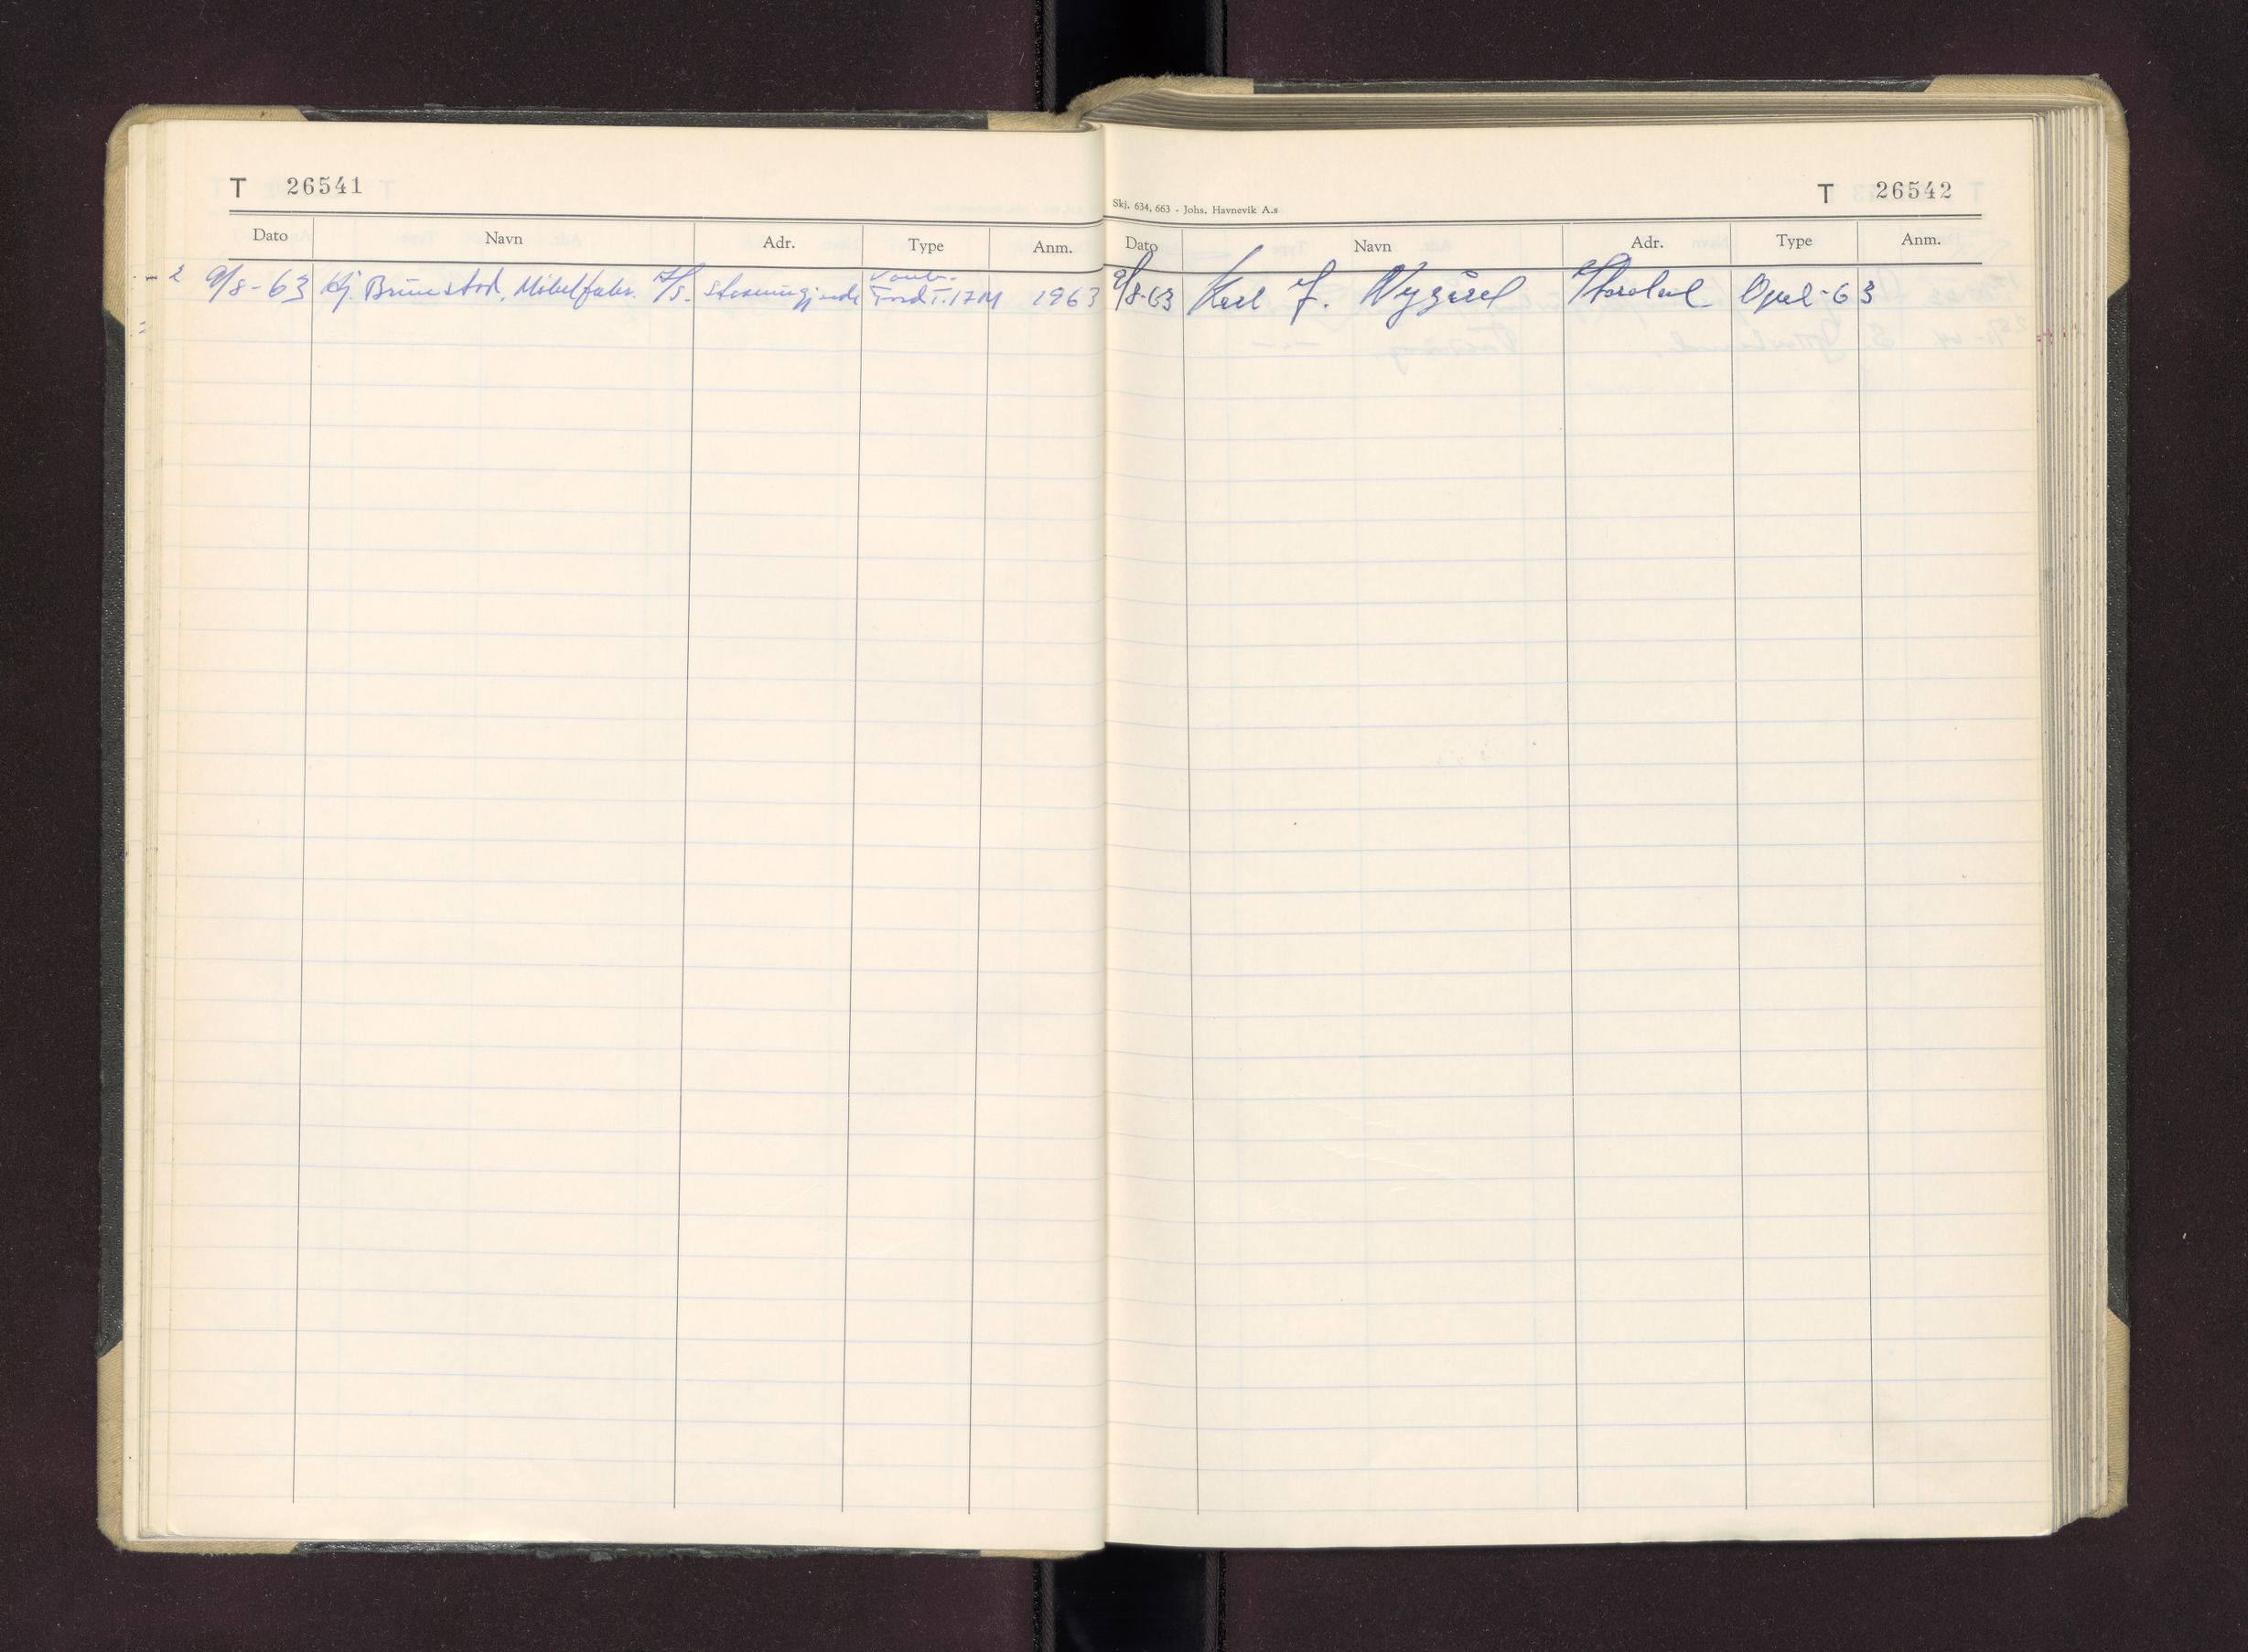 T 26541
Dato Navn Adr. Type Anm.
9/8-63 Hj. Brunstad, Møbelfabr. A/S. Straumgjerde Ford T. 17M 1963
T 26542
Skj. 634, 663 - Johs. Havnevik A.s
Dato Navn Adr. Type Anm.
9/8-63 Karl J. Nygård Opel-63